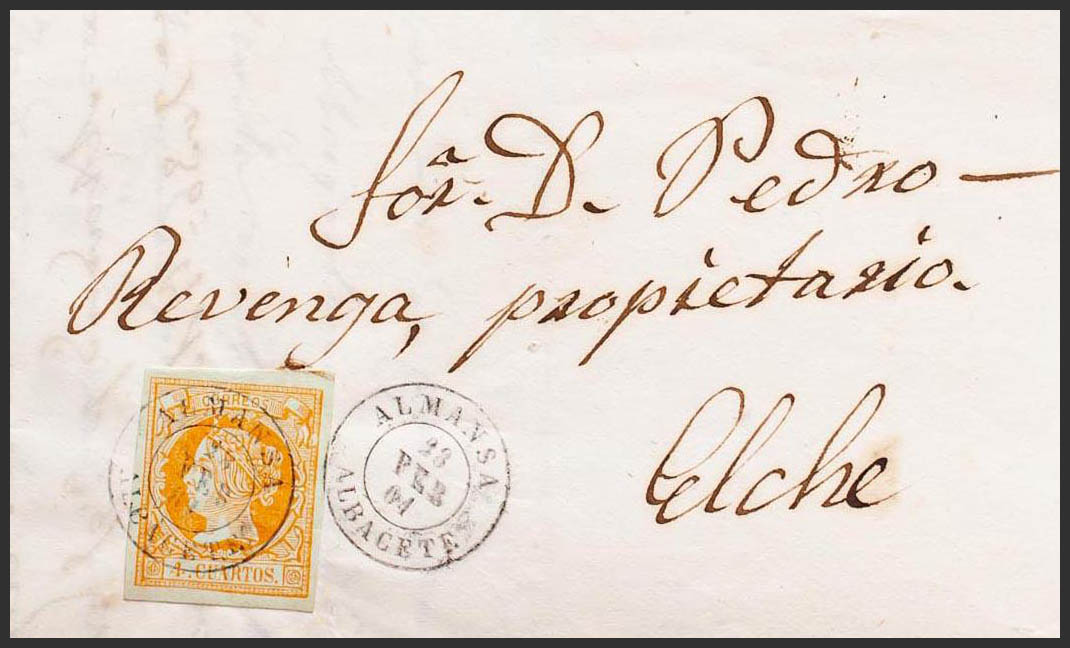 Sor. D. Pedro —
Revenga, propietario.
Elche
CORREOS
ALMANSA
ALBACETE
4. CUARTOS.
ALMANSA
23
FEB
61
ALBACETE